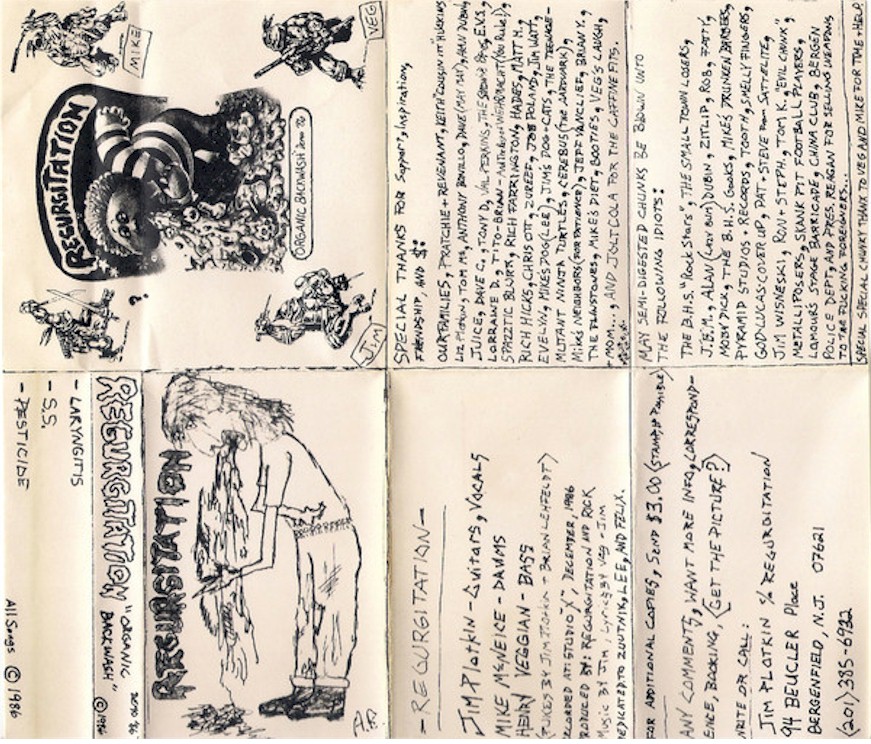 MIKE
VEG
REGURGITATION
ORGANIC BACKWASH Demo '86
?
JIM
SPECIAL THANKS FOR Support, Inspiration,
FRIENDSHIP, AND $:
OUR FAMILIES, PRATCHIE + REVENANT, KEITH "COUSIN ITT" HUCKINS
LIZ PLOTKIN, TOM M., ANTHONY BOVELLO, DAVE (MAY DAY),
JUICE, DAVE C., TONY D, VAL PERKINS, THE Bros, E.V.S.,
LORRAINE D., TITO-BRIAN - WEHRMACHT (YOU RULE!),
SPAZZTIC BLURR, RICH FARRINGTON, HADES, MATT M.,
RICH HICKS, CHRIS OTT, SUREEF, JOE POLAND, JIM WATT,
EVELYN, MIKE'S DOG (LEE), JIM'S DOG + CATS, THE TEENAGE-
MUTANT NINJA TURTLES, CEREBUS (THE AARDVARK),
MIKE'S NEIGHBORS (FOR PATIENCE), JEFF VANCLIEF, BRIAN Y.,
THE FLINTSTONES, MIKE'S DIET, BOOTIES, VEG'S LAUGH,
MOM..., AND JOLT COLA FOR THE CAFFINE FITS.
MAY SEMI-DIGESTED CHUNKS BE BLOWN UNTO
THE FOLLOWING IDIOTS:
THE B.H.S. "Rock Stars", THE SMALL TOWN LOSERS,
J.B.M., ALAN (LAZY BUM) DUBIN, ZITLIP, ROB, FATTY,
MOBY DICK, THE B.H.S. GEEKS, MIKE'S DRUNKEN BARBERS,
PYRAMID STUDIOS + RECORDS, TOOTH, SMELLY FINGERS,
GOD-LUCAS COVER UP, PAT + STEVE FROM SATTELITE,
JIM WISNESKI, RON + STEPH, TOM K. "EVIL CHUNK",
METALLIPOSERS, SKANK PIT FOOTBALL PLAYERS,
LAMOUR'S STAGE BARRICADE, CHINA CLUB, BERGEN
POLICE DEPT, AND PRES. REAGAN FOR SELLING WEAPONS
TO THE FUCKING FOREIGNERS...
SPECIAL SPECIAL CHUNKY THANX TO VEG AND MIKE FOR TIME + HELP.
- LARYNGITIS
- S.S.
- PESTICIDE
All Songs © 1986
REGURGITATION "ORGANIC BACKWASH" DEMO '86
© 1986
REGURGITATION
- REGURGITATION -
JIM PLOTKIN - Guitars, VOCALS
MIKE McNEICE - DRUMS
HENRY VEGGIAN - BASS
(PUKES BY JIM PLOTKIN + BRIAN LEHFELDT)
RECORDED AT: STUDIO X, DECEMBER, 1986
PRODUCED BY: REGURGITATION AND RICK
MUSIC BY JIM, LYRICS BY VEG + JIM
DEDICATED TO ZLUTNIK, LEE, AND FELIX.
FOR ADDITIONAL COPIES, SEND $3.00 (STAMPS IF POSSIBLE)
ANY COMMENTS, WANT MORE INFO, CORRESPOND-
ENCE, BOOKING, (GET THE PICTURE?)
WRITE OR CALL:
JIM PLOTKIN % REGURGITATION
94 BEUCLER Place
BERGENFIELD, N.J. 07621
(201) 385-6922